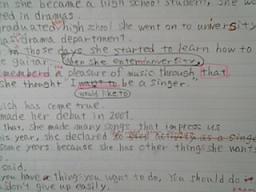 en she became a high school student, she wa
ed in dramas.
raduated high school she went on to university
drama department.
in those days she started to learn how to
e guitar. when she entered university
membered a pleasure of music through that
She thought I want to be a singer.
would like to
ish has come true.
made her debut in 2001.
that, she made many songs that impress us
is year, she declared to stop activity as a singe
some years because she has other things she want
said,
you have a thing you want to do, You should do it
uldn't give up easily.